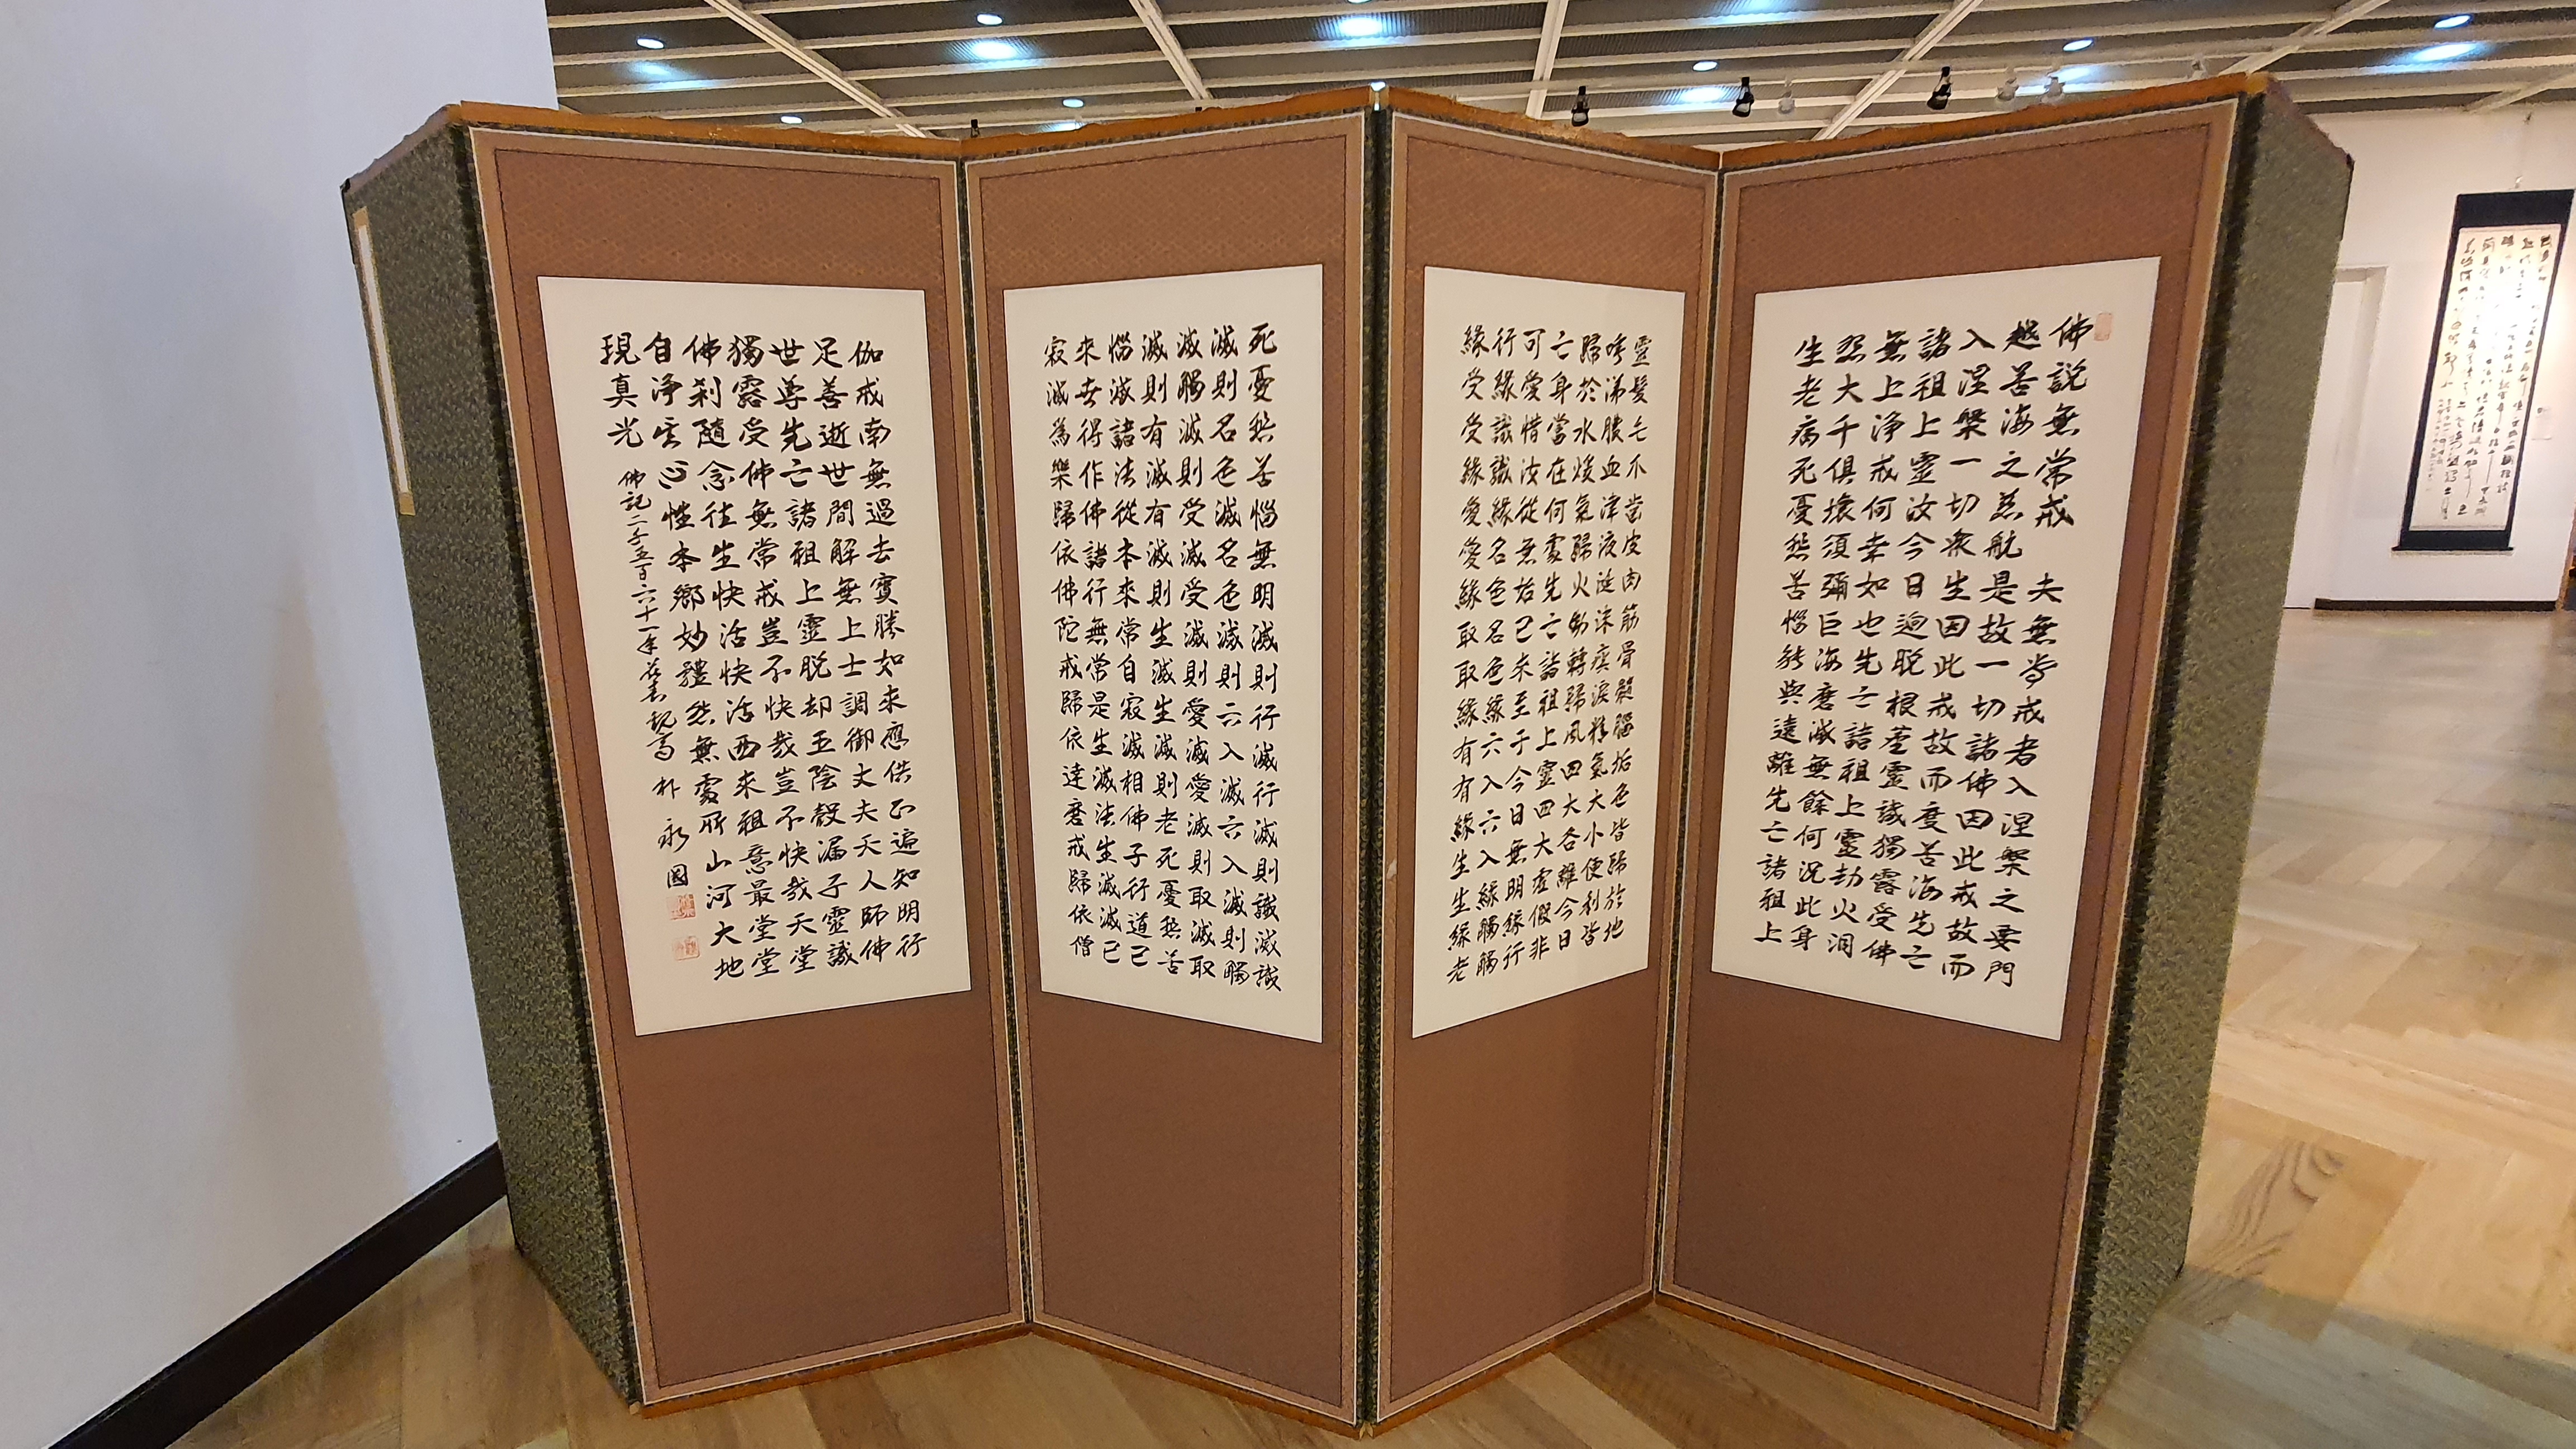 佛說無常戒 夫無常戒者入涅槃之要門
越苦海之慈航 是故一切諸佛因此戒故而
入涅槃一切衆生因此戒故而度苦海先亡
諸祖上靈汝今日逈脫根塵靈識獨露受佛
無上淨戒何幸如也先亡諸祖上靈劫火洞
然大千俱壞須彌巨海磨滅無餘何況此身
生老病死憂悲苦惱能與遠離先亡諸祖上
靈髮毛爪齒皮肉筋骨髓腦垢色皆歸於地
唾涕膿血津液涎沫痰淚精氣大小便利皆
歸於水煖氣歸火動轉歸風四大各離今日
亡身當在何處先亡諸祖上靈四大虛假非
可愛惜汝從無始已來至于今日無明緣行
行緣識識緣名色名色緣六入六入緣觸觸
緣受受緣愛愛緣取取緣有有緣生生緣老
死憂悲苦惱無明滅則行滅行滅則識滅識
滅則名色滅名色滅則六入滅六入滅則觸
滅觸滅則受滅受滅則愛滅愛滅則取滅取
滅則有滅有滅則生滅生滅則老死憂悲苦
惱滅諸法從本來常自寂滅相佛子行道已
來世得作佛諸行無常是生滅法生滅滅已
寂滅為樂歸依佛陀戒歸依達磨戒歸依僧
伽戒南無過去寶勝如來應供正遍知明行
足善逝世間解無上士調御丈夫天人師佛
世尊先亡諸祖上靈脫却五陰殼漏子靈識
獨露受佛無常戒豈不快哉豈不快哉天堂
佛刹隨念往生快活快活西來祖意最堂堂
自淨其心性本鄉妙體然無處所山河大地
現真光 佛記二千五百六十一年 朴永國